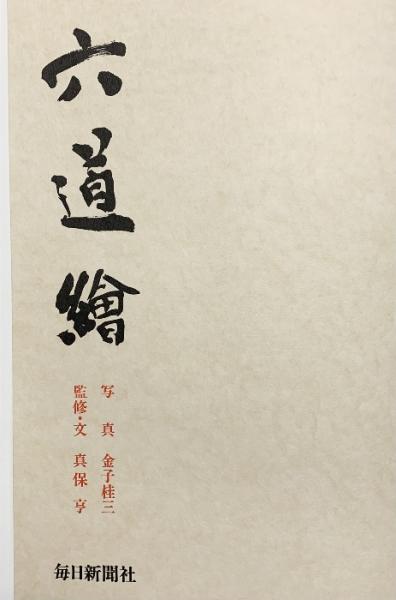 六道繪
写真 金子桂三
監修・文 真保亨
毎日新聞社